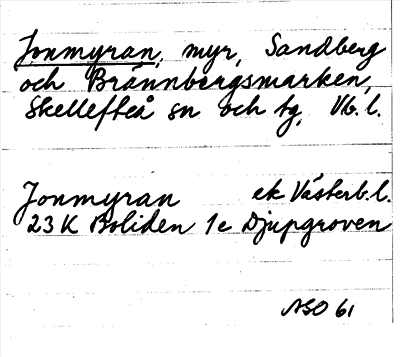 Jonmyran, myr, Sandberg
och Brännbergsmarken,
Skellefteå sn och tg, Vb. l.
Jonmyran ek Västerb. l.
23 K Boliden 1e Djupgroven
NSO 61